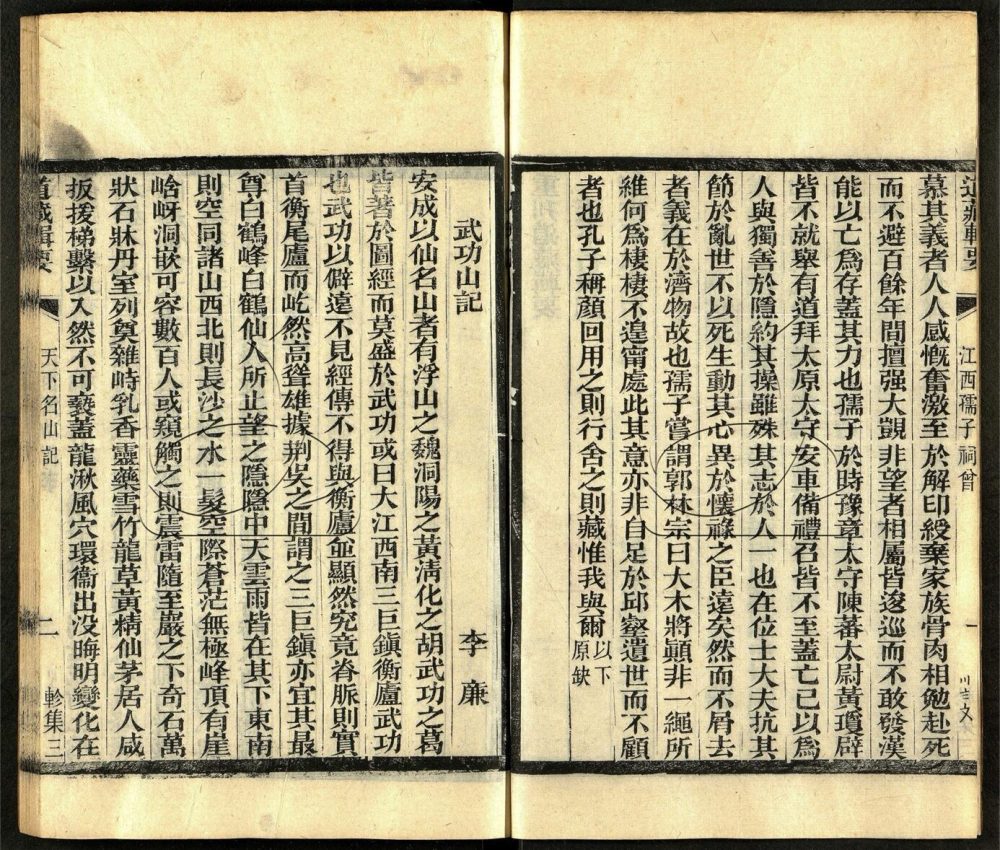 慕其義者人人感慨奮激至於解印綬棄家族骨肉相勉赴死
而不避百餘年間擅强大覬非望者相屬皆逡巡而不敢發漢
能以亡爲存蓋其力也孺子於時豫章太守陳蕃太尉黃瓊辟
皆不就舉有道拜太原太守安車備禮召皆不至蓋亡已以爲
人與獨善於隱約其操雖殊其志於人一也在位士大夫抗其
節於亂世不以死生動其心異於懷祿之臣遠矣然而不屑去
者義在於濟物故也孺子嘗謂郭林宗曰大木將顚非一繩所
維何爲棲棲不遑甯處此其意亦非自足於邱壑遺世而不顧
者也孔子稱顔回用之則行舍之則藏惟我與爾以下原缺
道藏輯要
江西孺子祠曾
一
武功山記
李廉
安成以仙名山者有浮山之魏洞陽之黃淸化之胡武功之葛
皆著於圖經而莫盛於武功或曰大江西南三巨鎭衡廬武功
也武功以僻遠不見經傳不得與衡廬並顯然究竟脊脈則實
首衡尾廬而屹然高聳雄據荆吳之間謂之三巨鎭亦宜其最
尊白鶴峰白鶴仙人所止望之隱隱中天雲雨皆在其下東南
則空同諸山西北則長沙之水一髮空際蒼茫無極峰頂有崖
峆岈洞嵌可容數百人或窺觸之則震雷隨至巖之下奇石萬
狀石牀丹室列奠雜峙乳香靈藥雪竹龍草黃精仙茅居人咸
扳援梯繫以入然不可褻蓋龍湫風穴環衞出没晦明變化在
道藏輯要
天下名山記
二
軫集三